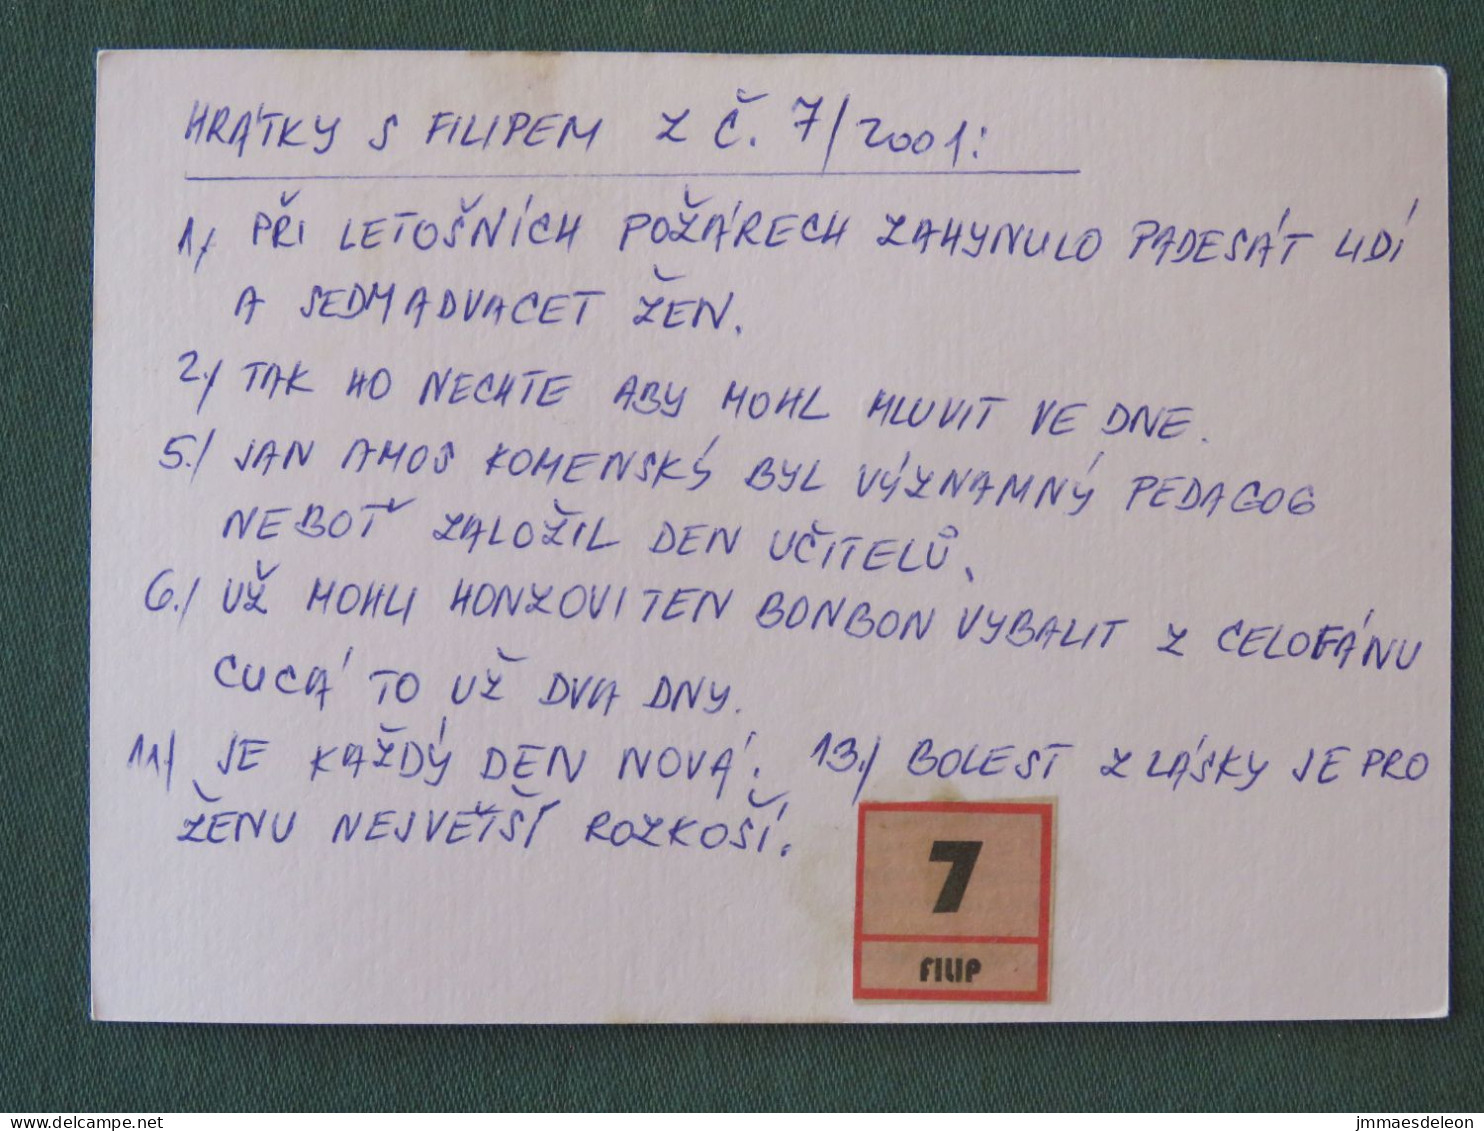 HRÁTKY S FILIPEM Z Č. 7/2001:
1./ PŘI LETOŠNÍCH POŽÁRECH ZAHYNULO PADESÁT LIDÍ
A SEDMADVACET ŽEN.
2./ TAK HO NECHTE ABY MOHL MLUVIT VE DNE.
5./ JAN AMOS KOMENSKÝ BYL VÝZNAMNÝ PEDAGOG
NEBOŤ ZALOŽIL DEN UČITELŮ.
6./ UŽ MOHLI HONZOVI TEN BONBON VYBALIT Z CELOFÁNU
CUCÁ TO UŽ DVA DNY.
11./ JE KAŽDÝ DEN NOVÁ. 13./ BOLEST Z LÁSKY JE PRO
ŽENU NEJVĚTŠÍ ROZKOŠÍ.
7
FILIP
delcampe.net
jmmaesdeleon